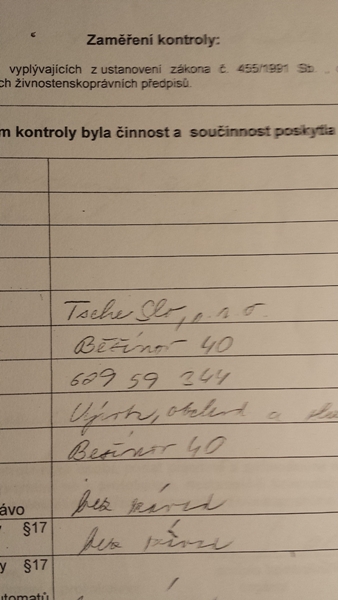 Zaměření kontroly:
vyplývajících z ustanovení zákona č. 455/1991 Sb.,
ch živnostenskoprávních předpisů.
m kontroly byla činnost a součinnost poskytla
Tsche Slo, s. r. o.
Běšinov 40
629 59 244
Výroba, obchod a slu
Běšinov 40
ávo bez závad
§17 bez závad
y §17
utomatů